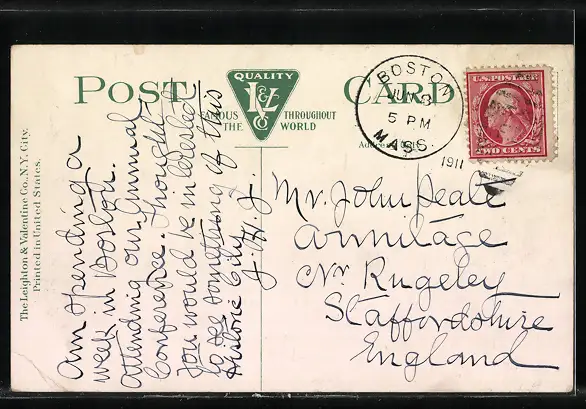 POST CARD
QUALITY
L&V
Co
FAMOUS THROUGHOUT
THE WORLD
BOSTON
JUN 3
5 PM
MASS.
1911
U.S. POSTAGE
TWO CENTS
The Leighton & Valentine Co., N.Y. City.
Printed in United States.
Am spending a
week in Boston.
Attending our Annual
Conference. Thought
You would be interested
to see something of this
Historic City.
J. H. J.
Mr. John Peale
Armitage
Nr. Rugeley
Staffordshire
England